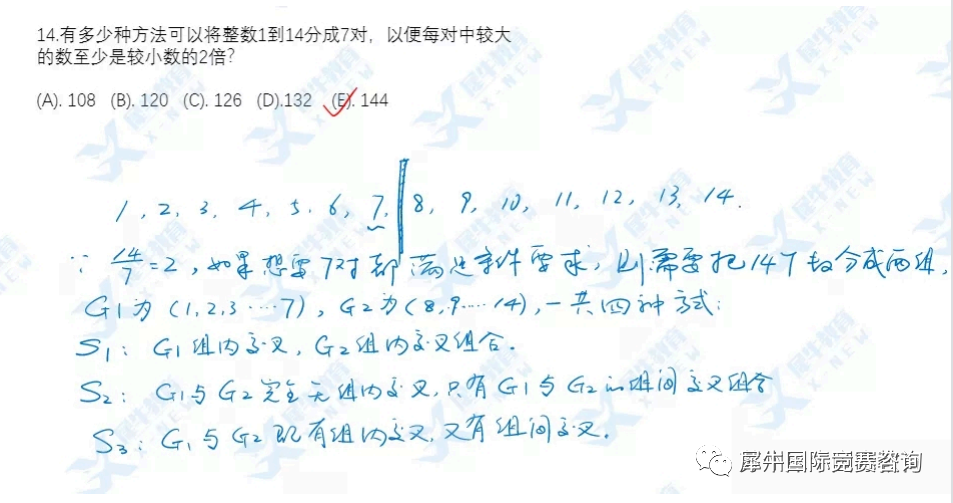 14.有多少种方法可以将整数1到14分成7对，以便每对中较大
的数至少是较小数的2倍？
(A). 108 (B). 120 (C). 126 (D).132 (E). 144
1, 2, 3, 4, 5, 6, 7, 8, 9, 10, 11, 12, 13, 14.
∵ 14/7=2，如果想要7对都满足条件要求，则需要把14个数分成两组，
G1为(1,2,3……7)，G2为(8,9……14)，一共四种方式：
S1：G1组内交叉，G2组内交叉组合.
S2：G1与G2完全无组内交叉，只有G1与G2的组间交叉组合
S3：G1与G2既有组内交叉，又有组间交叉.
犀牛国际竞赛咨询
犀牛教育
X-NEW